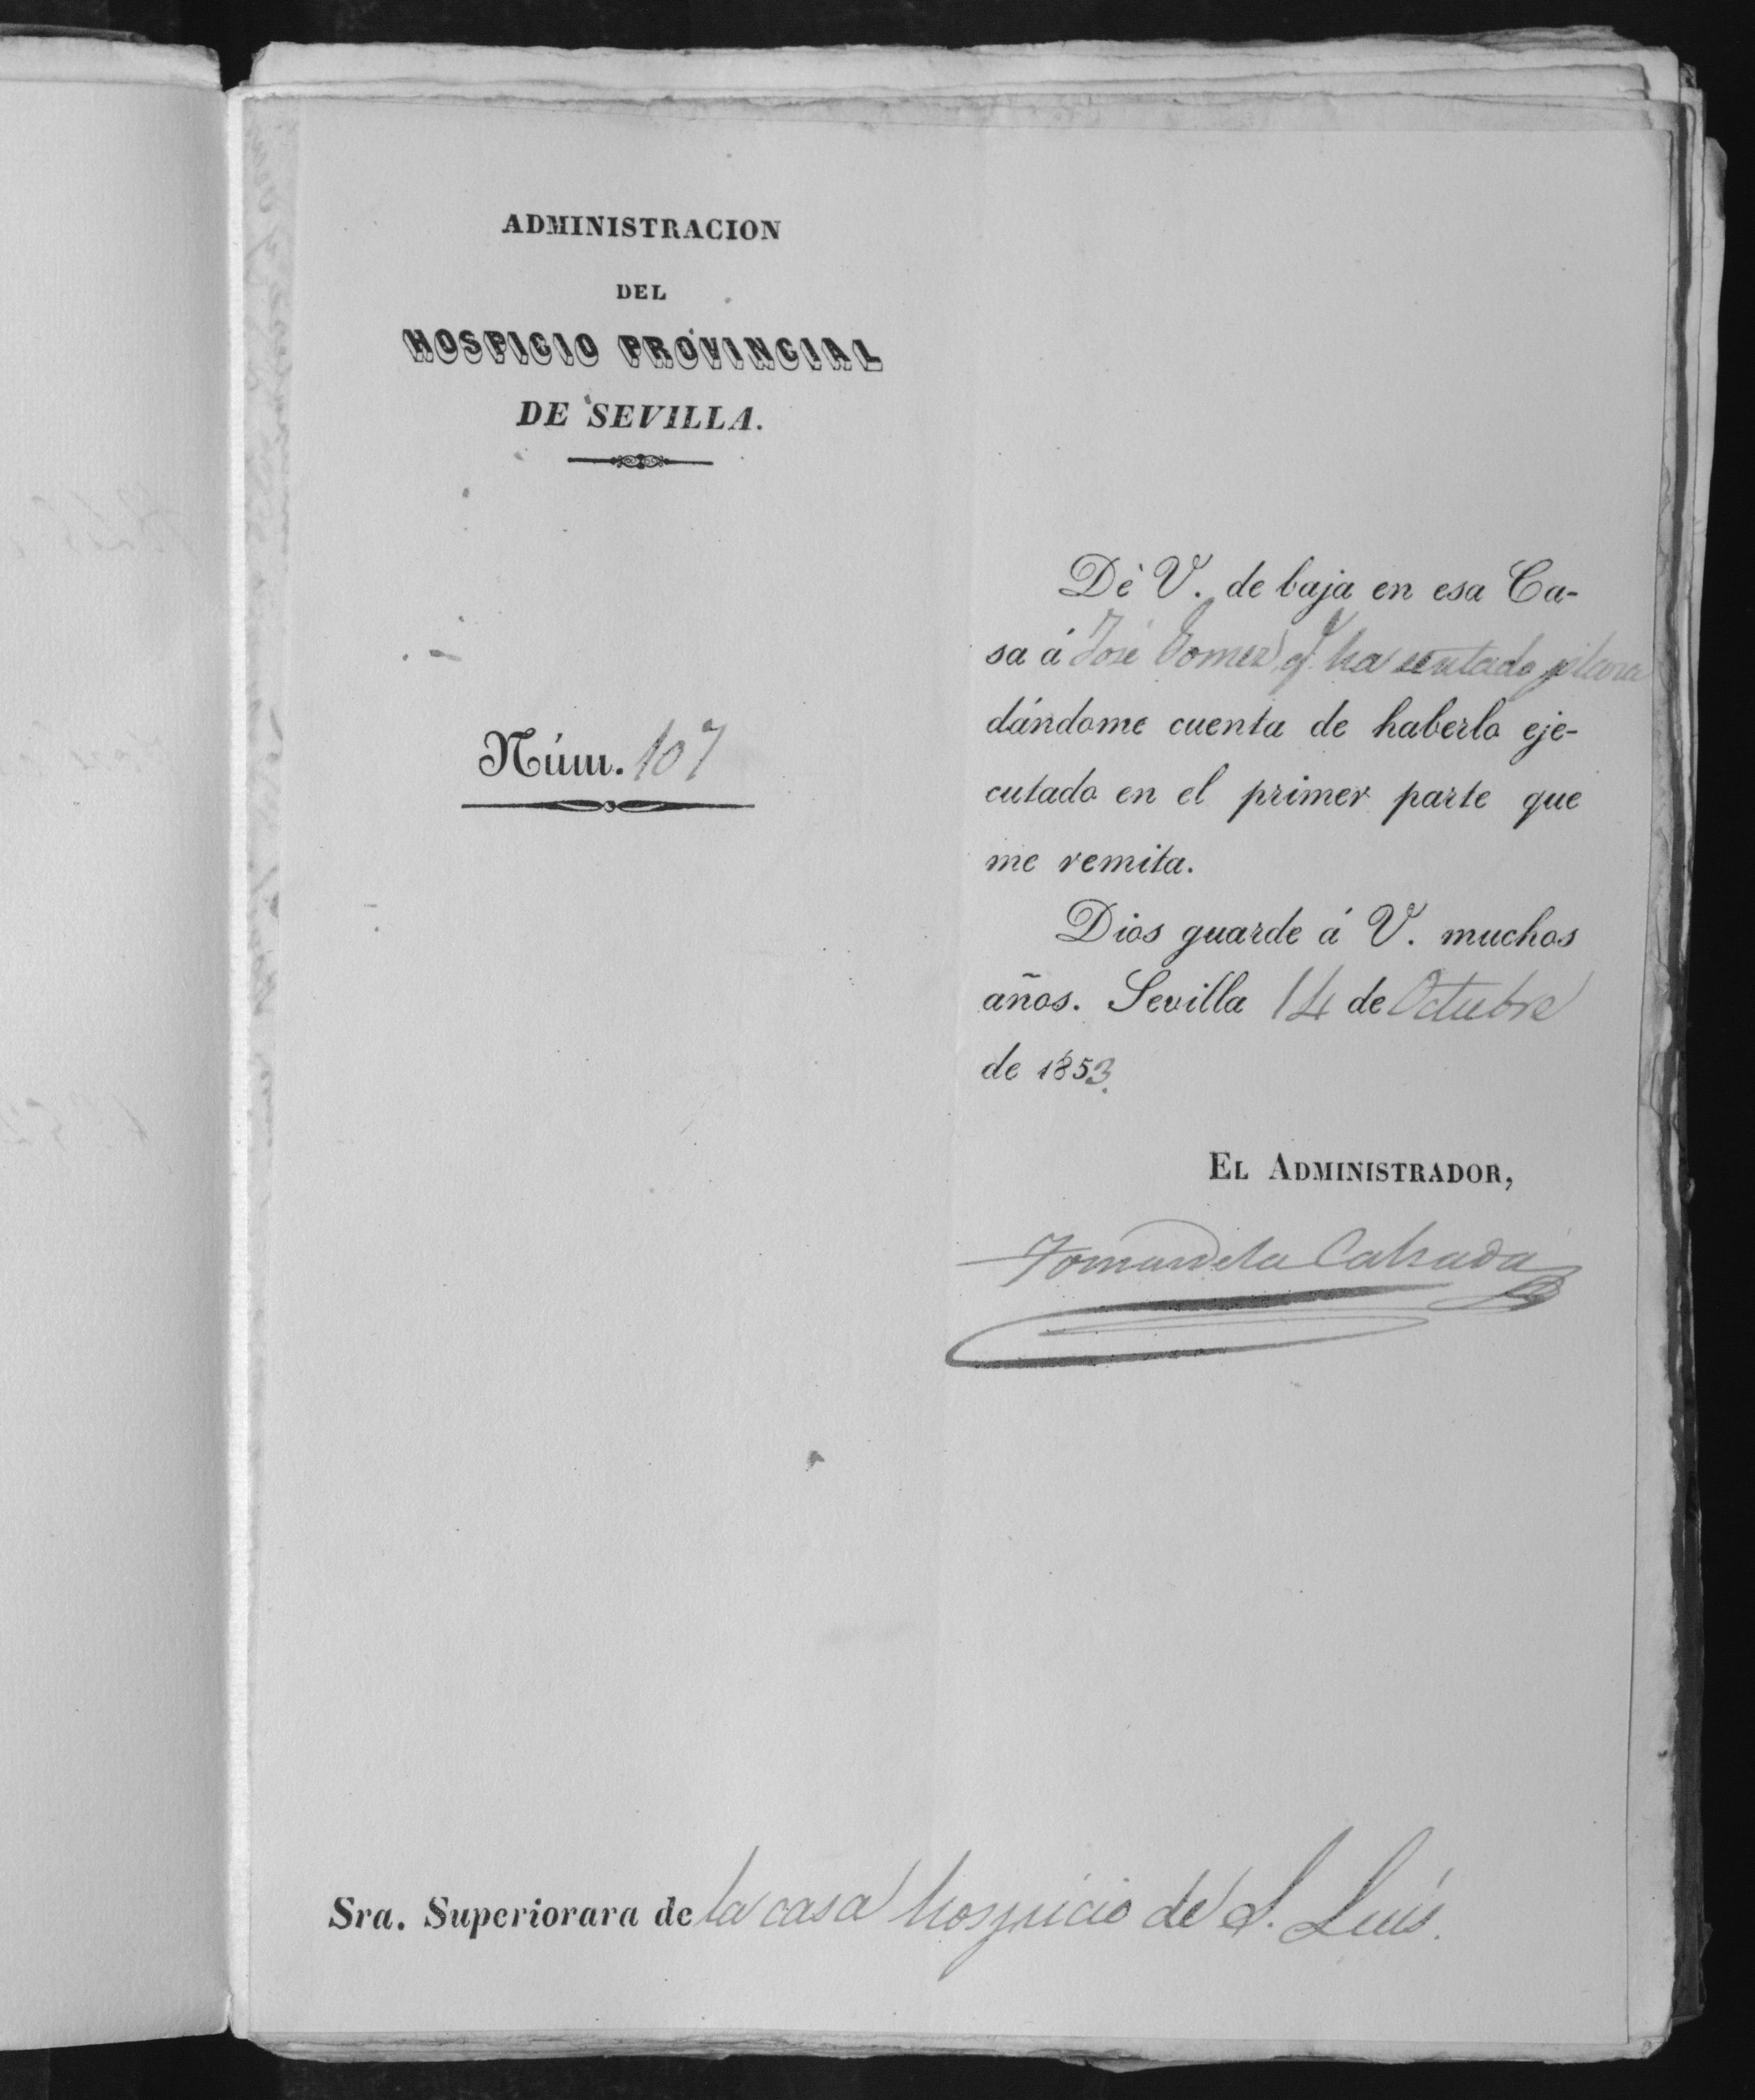 ADMINISTRACION
DEL
HOSPICIO PROVINCIAL
DE SEVILLA.
Núm. 107
Dè V. de baja en esa Ca-
sa á José Gomez q. ha sentado plaza
dándome cuenta de haberlo eje-
cutado en el primer parte que
me remita.
Dios guarde á V. muchos
años. Sevilla 14 de Octubre
de 1853.
EL ADMINISTRADOR,
Calzada
Sra. Superiorara de la casa hospicio de S. Luis.